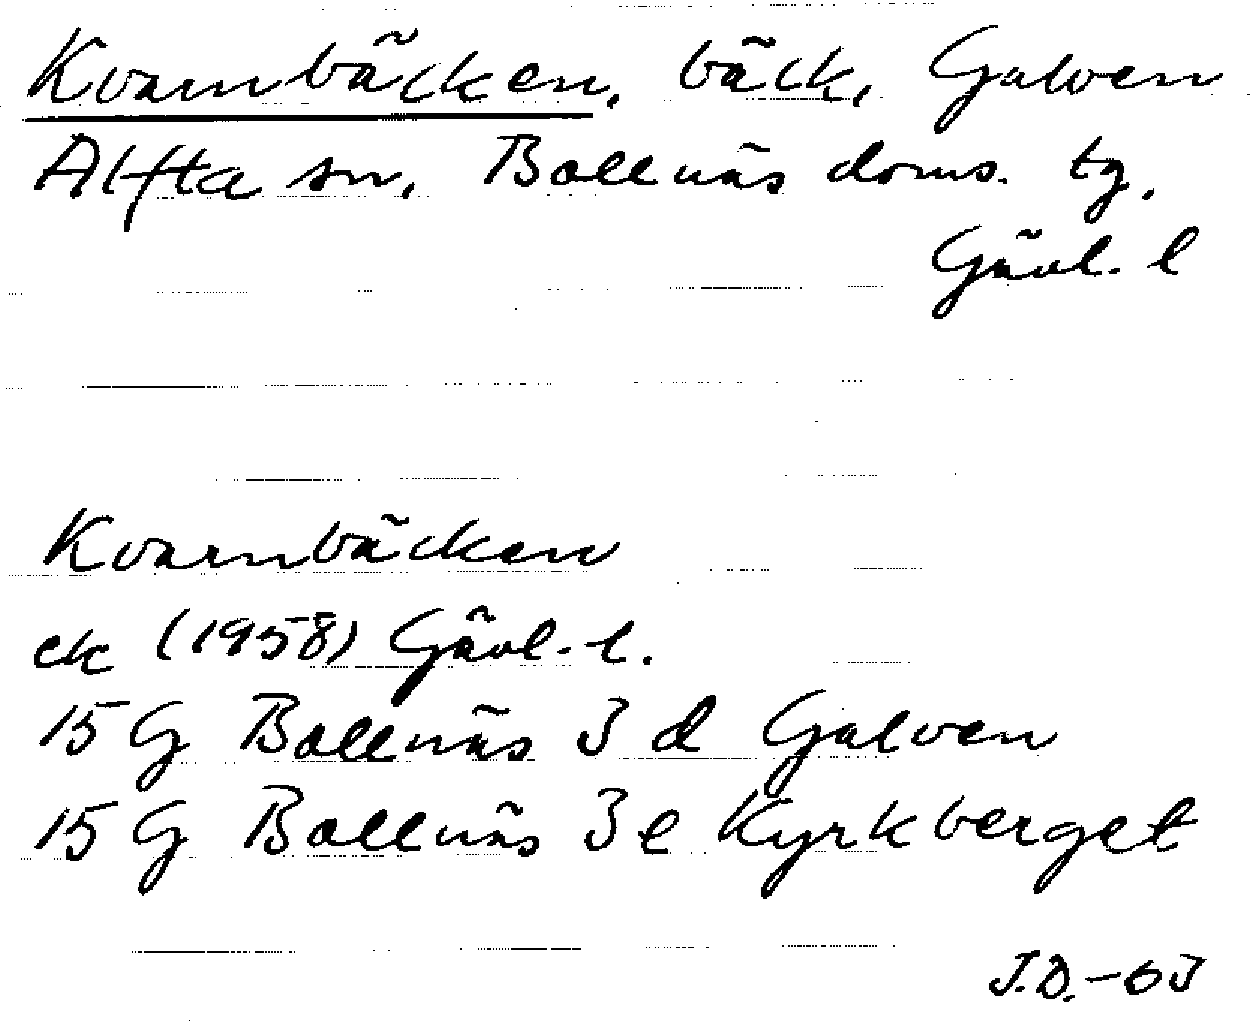 Kvarnbäcken, bäck, Galven
Alfta sn, Bollnäs doms. tg.
Gävl. l
Kvarnbäcken
ek (1958) Gävl. l.
15 G Bollnäs 3 d Galven
15 G Bollnäs 3 e Kyrkberget
J.D.-63